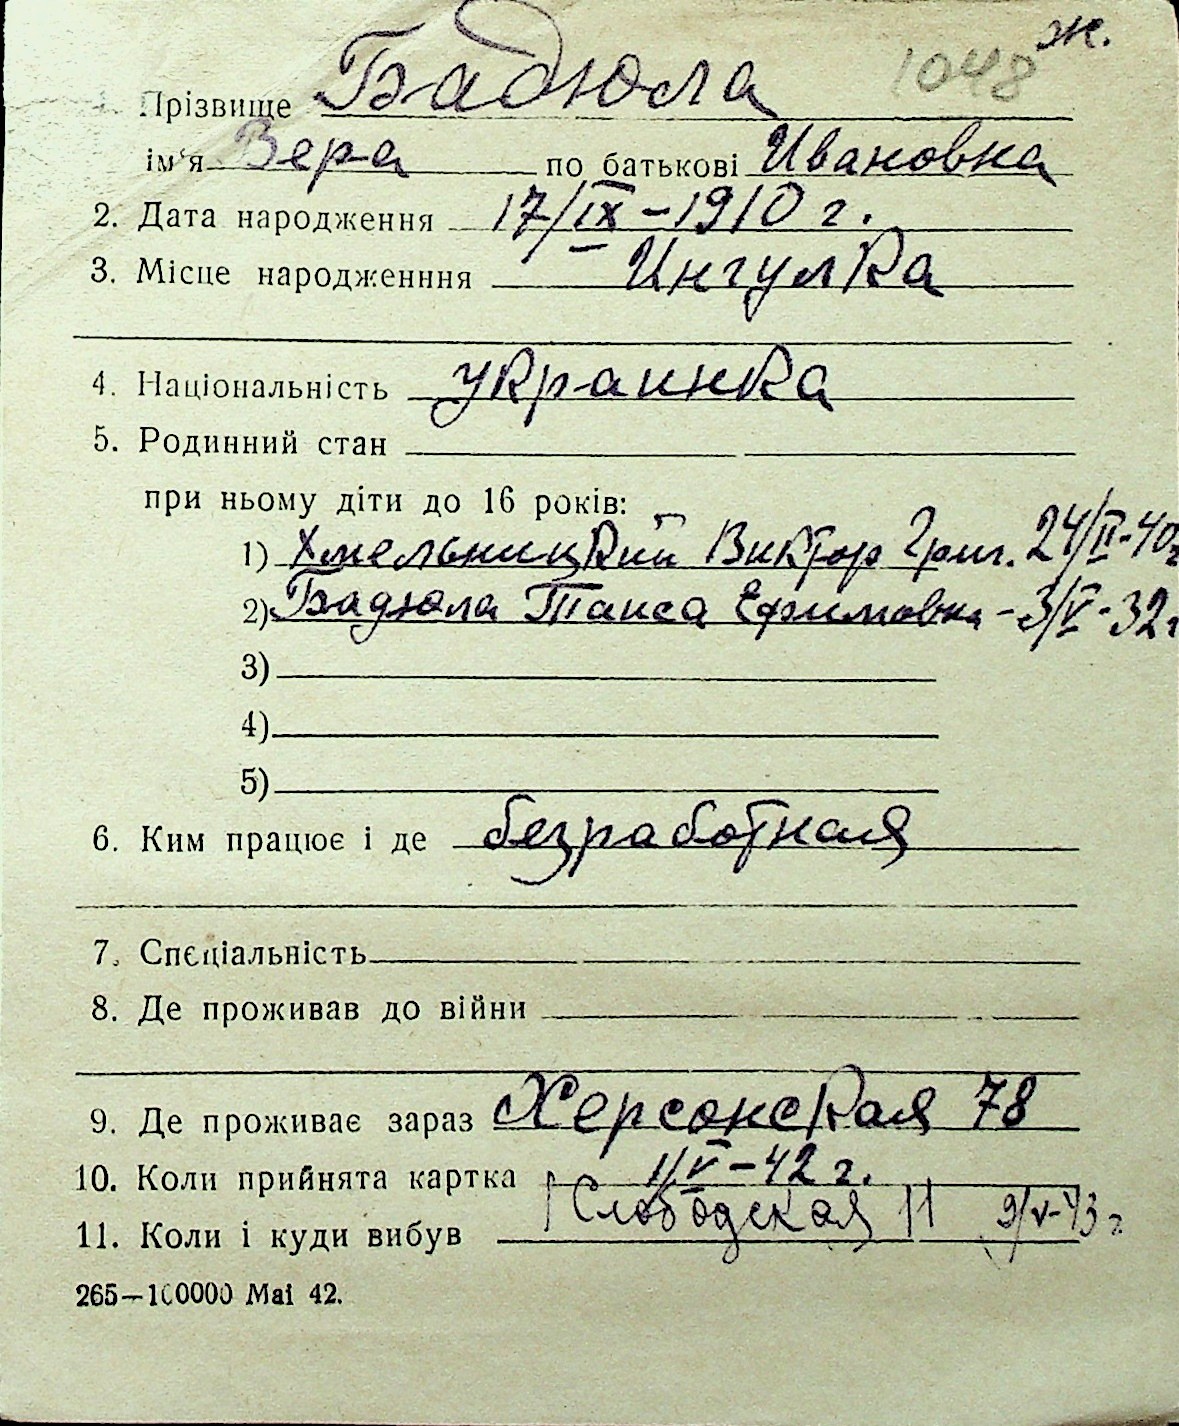 ж.
1048
1. Прізвище Бадюла
ім'я Вера по батькові Ивановна
2. Дата народження 17/IX-1910 г.
3. Місце народженння Ингулка
4. Національність украинка
5. Родинний стан
при ньому діти до 16 років:
1) Хмельницкий Виктор Григ. 24/II-40г
2) Бадюла Таиса Ефимовна - 3/V-32г
3)
4)
5)
6. Ким працює і де безработная
7. Спєціальність
8. Де проживав до війни
9. Де проживає зараз Херсонская 78
10. Коли прийнята картка 1/V-42 г.
Слободская 11 9/V-43 г
11. Коли і куди вибув
265—100000 Mai 42.